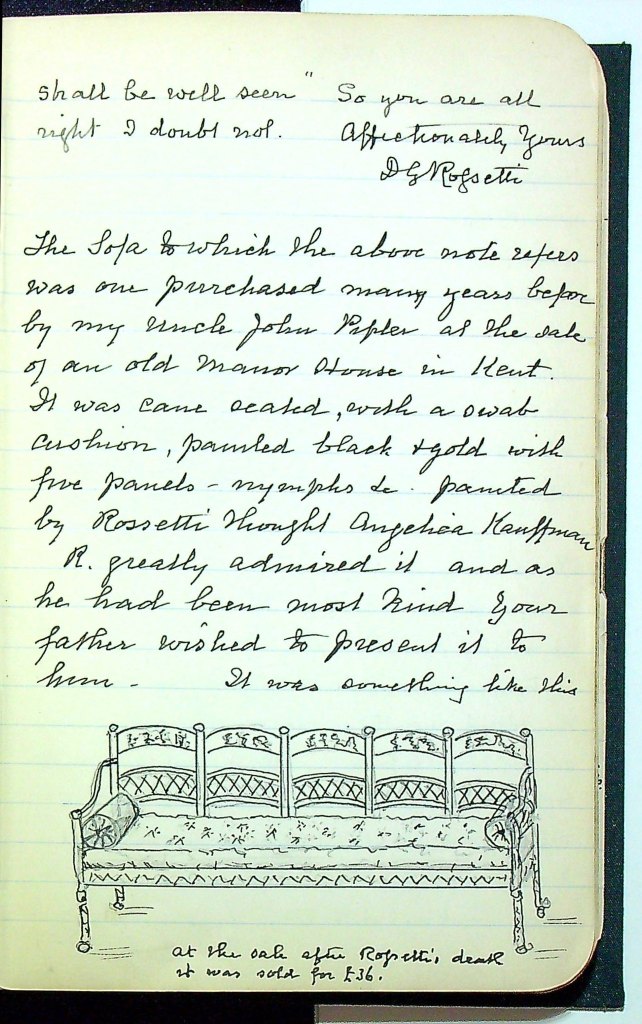 shall be well seen" So you are all
right I doubt not. Affectionately Yours
DG Rossetti
The Sofa to which the above note refers
was one purchased many years before
by my Uncle John at the sale
of an old Manor House in Kent.
It was cane seated, with a swab
cushion, painted black & gold with
five panels - nymphs &c. painted
by Rossetti thought Angelica Kauffman
R. greatly admired it and as
he had been most kind your
father wished to present it to
him - It was something like this
at the sale after Rossetti's death
it was sold for £36.